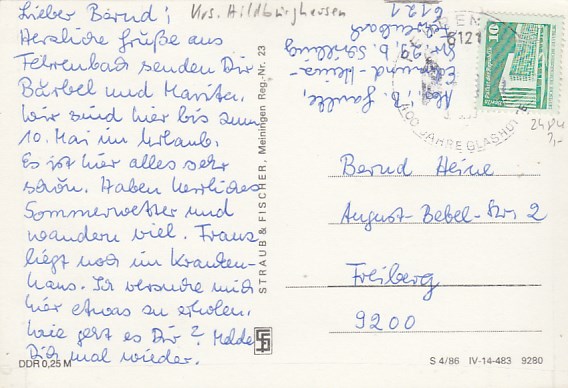 Lieber Bernd!
Krs. Hildburghausen
Herzliche Grüße aus
Fehrenbach senden Dir
Bärbel und Marita.
Wir sind hier bis zum
10. Mai im Urlaub.
Es ist hier alles sehr
schön. Haben herrliches
Sommerwetter und
wandern viel. Franz
liegt noch im Kranken-
haus. Ich versuche mich
hier etwas zu erholen.
Wie geht es Dir? Melde
Dich mal wieder.
DDR 0,25 M
STRAUB & FISCHER, Meiningen Reg.-Nr. 23
Edmund-Heinz-
Str. 29 b. Schilling
Fehrenbach
6121
6121
400 JAHRE GLASHÜ
10
DDR
2484
Bernd Heine
August-Bebel-Str. 2
Freiberg
9200
S 4/86 IV-14-483 9280